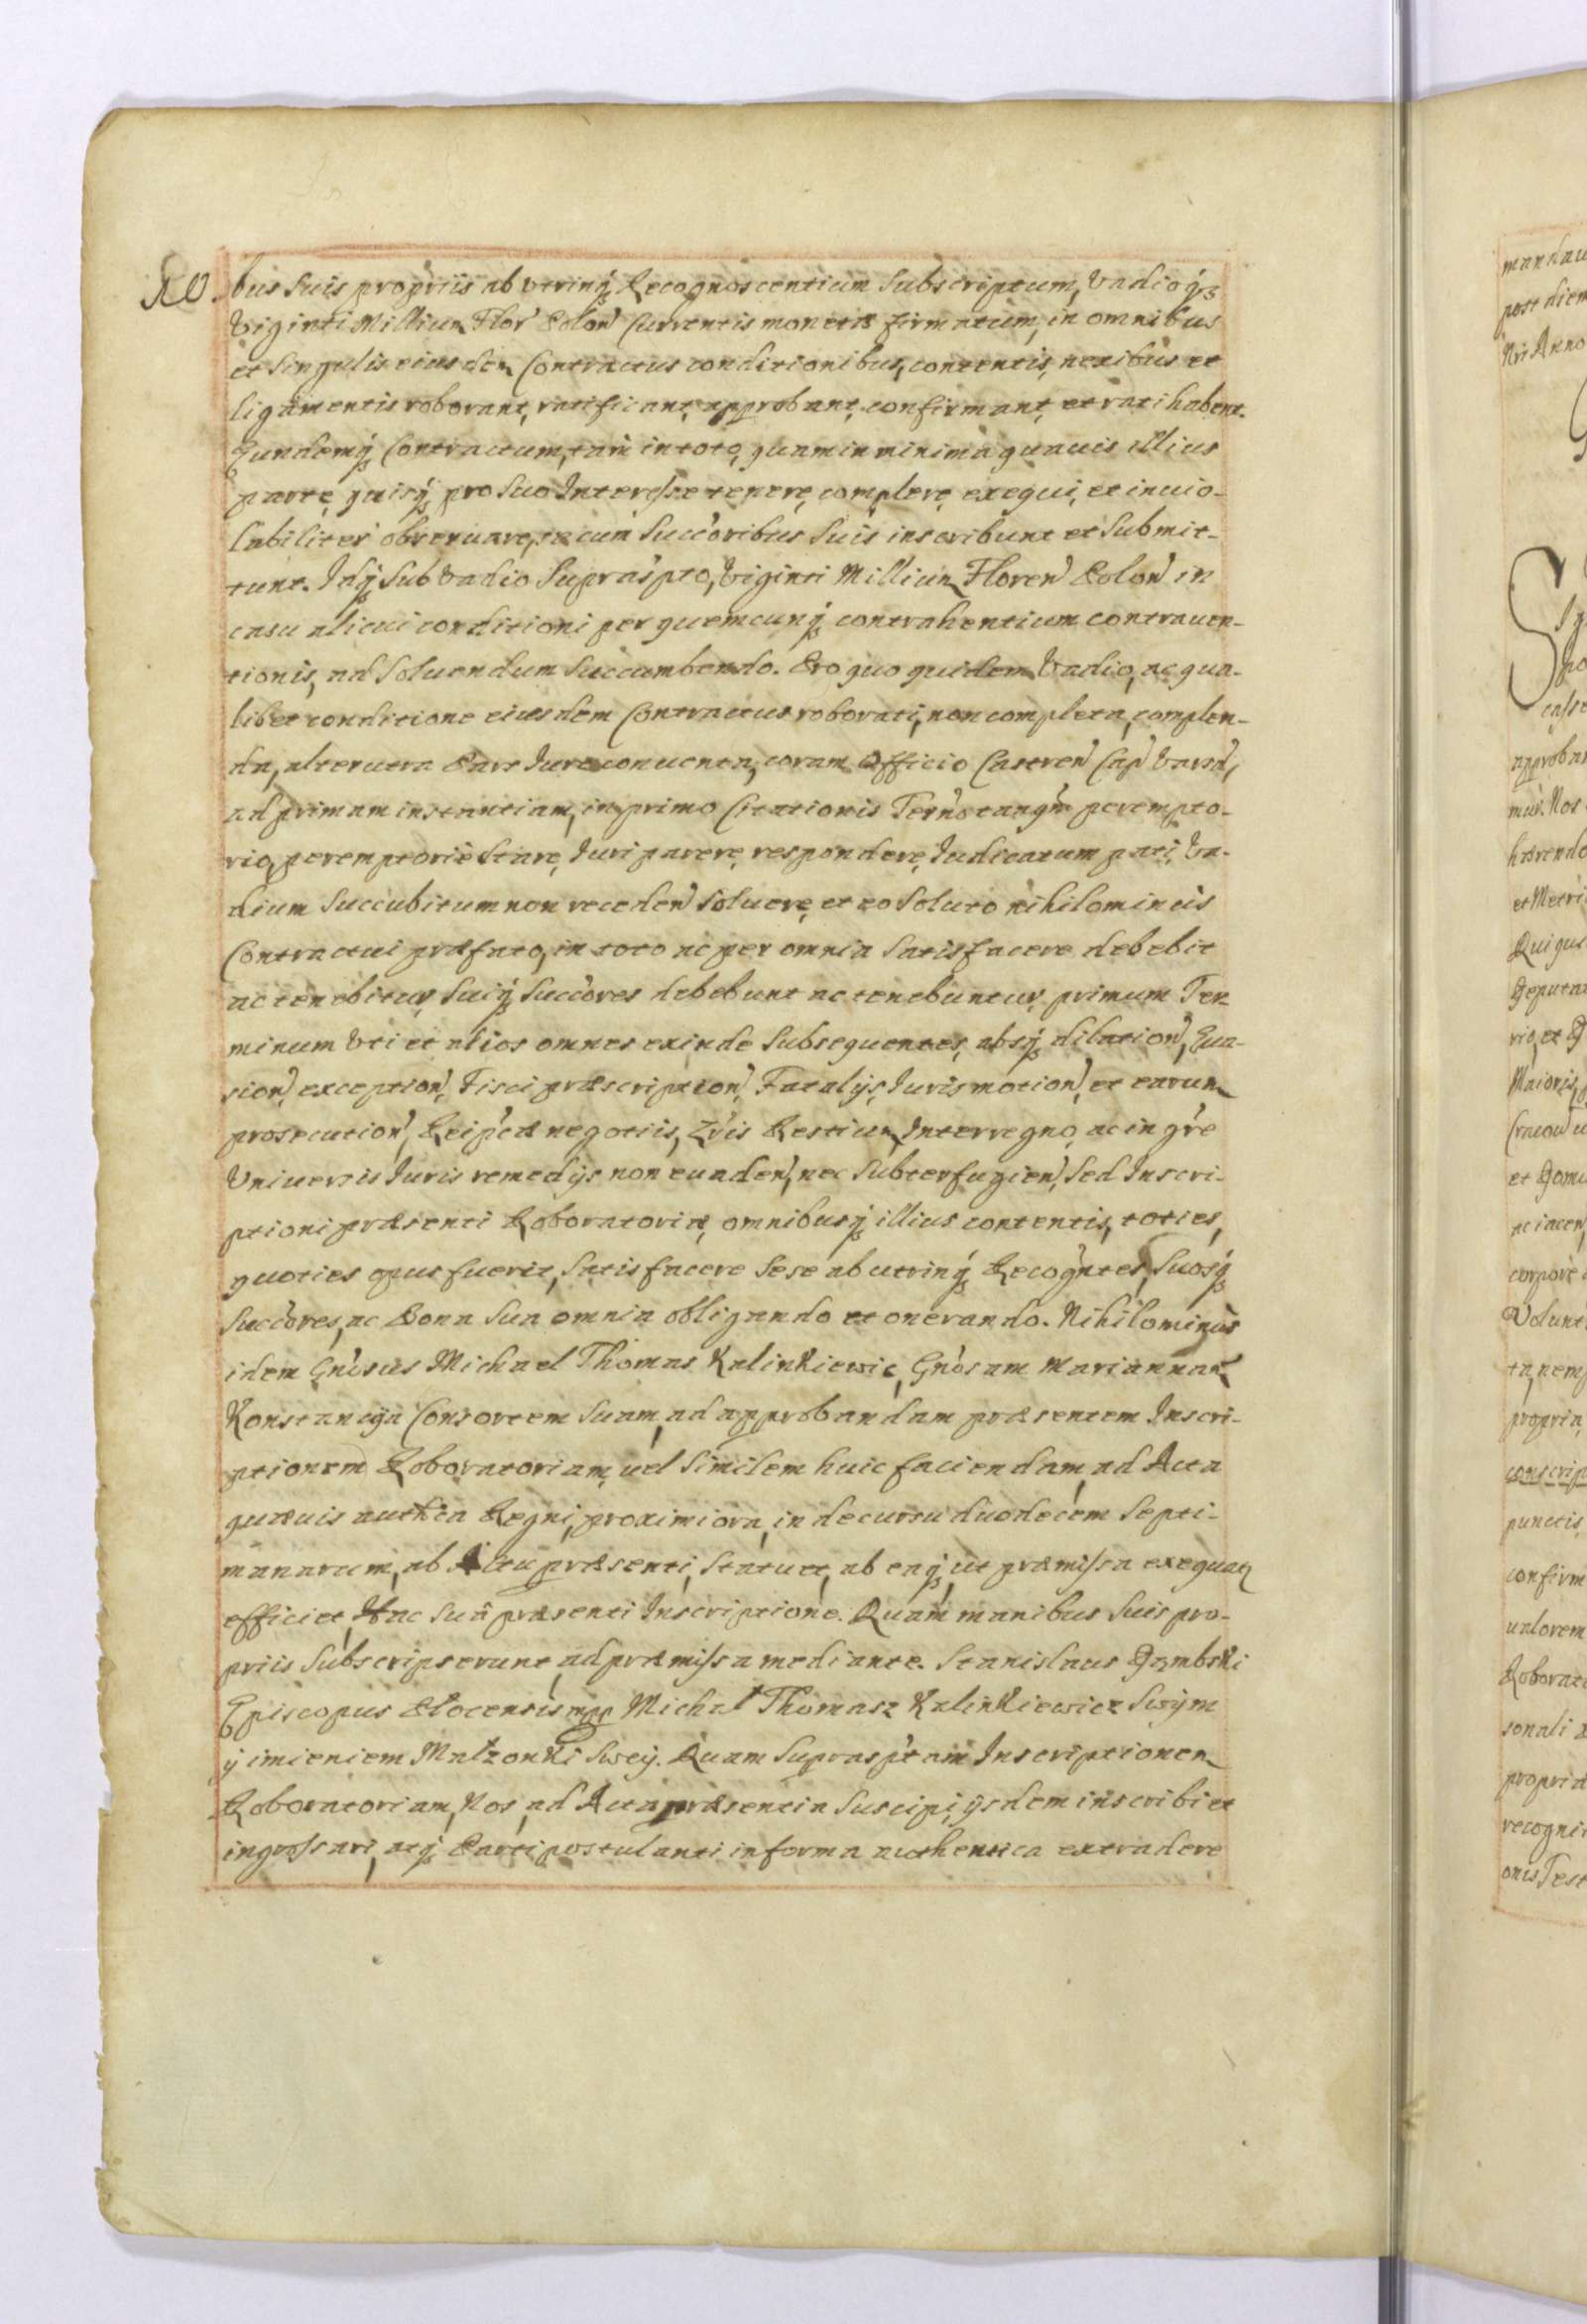 bus Suis propriis ab vtrinq Recognoscentium Subscriptum, Vadioq3
Viginti Millium Flor Polon Currentis monetæ firmatum, in omnibus
et Singulis eiusdem Contractus conditionibus, contentis, nexibus et
ligamentis roborant, ratificant, approbant, confirmant, et ratihabent.
Eundemq Contractum, tam in toto, quam in minima quauis illius
parte, quisq pro Suo Interesse tenere, complere, exequi, et inuio-
labiliter obseruare, se cum Succoribus Suis inscribunt et Submit-
tunt. Idq Sub Vadio Suprasρto, Viginti Millium Floren Polon in
casu alicui conditioni per quemcunq contrahentium contrauen-
tionis, ad Soluendum Succumbendo. Pro quo quidem Vadio, ac qua-
libet conditione eiusdem Contractus roborati, non completa, complen-
da, alterutra Pars Iure conuenta, coram Officio Castren Cap Varsa,
ad primam instantiam, in primo Citationis Terno tanqm perempto-
rio, peremptoriè Stare, Iuri parere, respondere, Iudicatum pati, Va-
dium Succubitum non receden Soluere, et eo Soluto nihilominùs
Contractui præfato, in toto ac per omnia Satisfacere debebit
ac tenebitur, Suiq Succores debebunt ac tenebuntur, primum Ter-
minum Vti et alios omnes exinde Subsequentes, absq dilation, Eua-
sion, exception, Fisci præscription, Fatalijs, Iuris motion, et earum
prosecution, Reipcæ negotiis, Zris Restium, Interregno, ac in gre
Vniuersis Iuris remedijs non euaden, nec Subterfugien, Sed Inscri-
ptioni præsenti Roboratoriæ, omnibusq illius contentis, toties,
quoties opus fuerit, Satisfacere Sese ab utrinq Recogntes, Suosq
Succores, ac Bona Sua omnia obligando et onerando. Nihilominùs
idem Gnosus Michael Thomas Kalinkiewic, Gnosam Mariannam
Konstancÿa Consortem Suam, ad approbandam præsentem Inscri-
ptionem Roboratoriam, uel Similem huic faciendam, ad Acta
quæuis authca Regni, proximiora, in decursu duodecem Septi-
manarum, ab Actu præsenti, Statuet, ab eaq, ut præmissa exequat
efficiet, Hac Suâ præsenti Inscriptione. Quam manibus Suis pro-
priis Subscripserunt, ad præmissa mediante. Stanislaus Dąmbski
Episcopus Plocensis mpp Michał Thomasz Kalinkiewicz Swÿm
ÿ imieniem Małzonki Sweÿ. Quam Suprasρtam Inscriptionem
Roboratoriam, Nos, ad Acta præsentia Suscipi, ijsdem inscribi et
ingrossari, atq Parti postulanti in forma authentica extradere